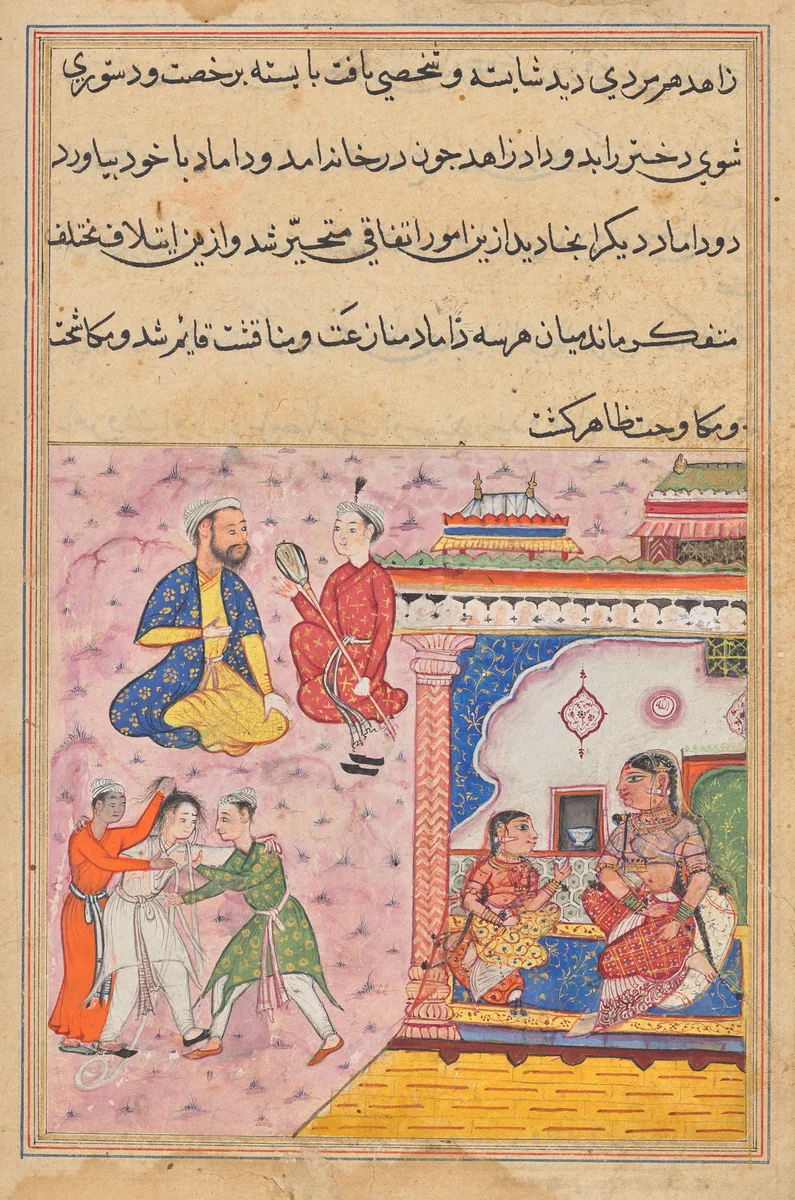 زاهد هر مردي ديد شايسته و شخصي يافت بايسته برخصت و دستوري
شوي دختر را بدو داد زاهد جون در خانه امد و داماد با خود بياورد
دو داماد ديكر انجا ديد ازين امور اتفاقي متحيّر شد و ازين ايتلاف مختلف
متفكر ماند ميان هر سه داماد منازعَت و مناقشت قايم شد و مكاشحت
و مكاوحت ظاهر كشت
الله